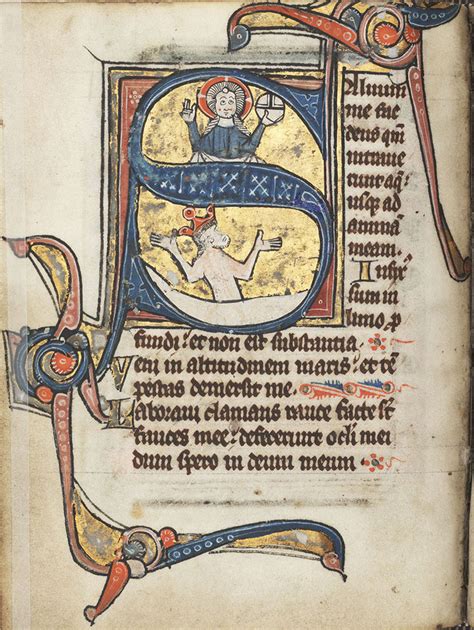 Saluum
me fac
deus qm̄
intraue
runt aq̄:
usq; ad
animā
meam.
Infix᷒
sum in
limo p
fundi: et non est substantia
Veni in altitudinem maris: et tē
pestas demersit me.
Laboraui clamans rauce facte st̄
fauces mee: defecerunt oculi mei
dum spero in deum meum